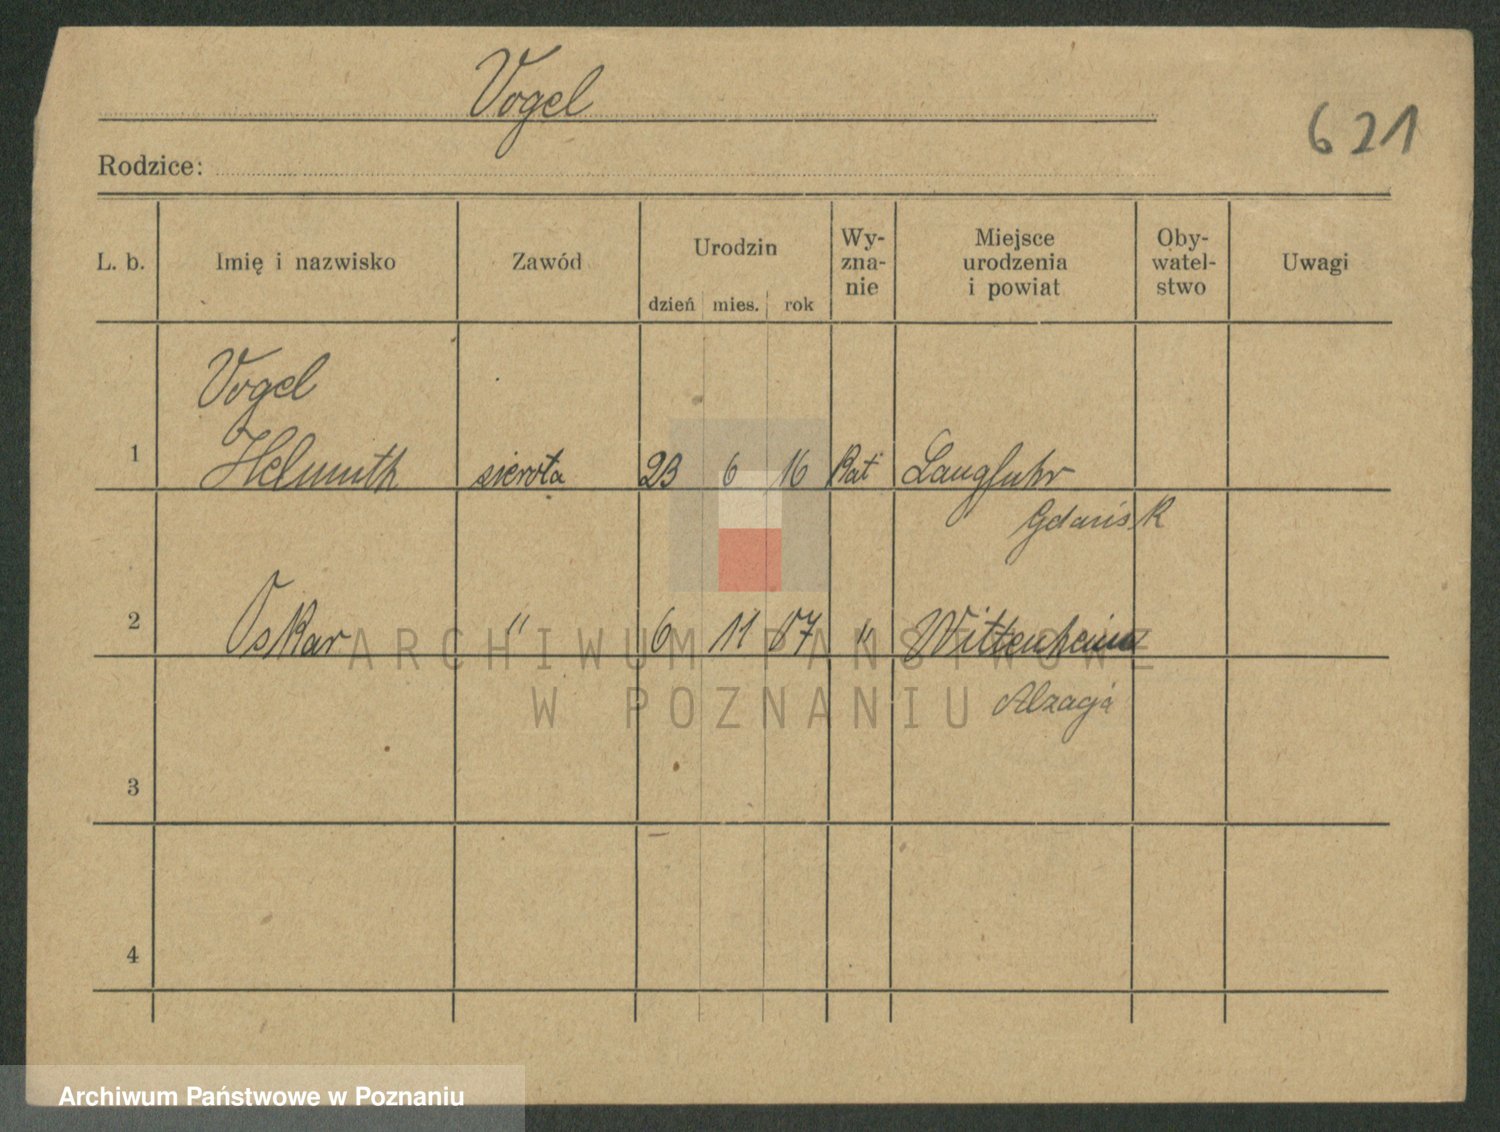 Vogel
621
Rodzice:
L. b. Imię i nazwisko Zawód Urodzin dzień mies. rok Wy-zna-nie Miejsce urodzenia i powiat Oby-watel-stwo Uwagi
Vogel
1 Helmuth sierota 23 6 16 Kat Langfuhr
Gdańsk
2 Oskar " 6 11 07 " Wittenheim
Alzacja
3
4
ARCHIWUM PAŃSTWOWE
W POZNANIU
Archiwum Państwowe w Poznaniu